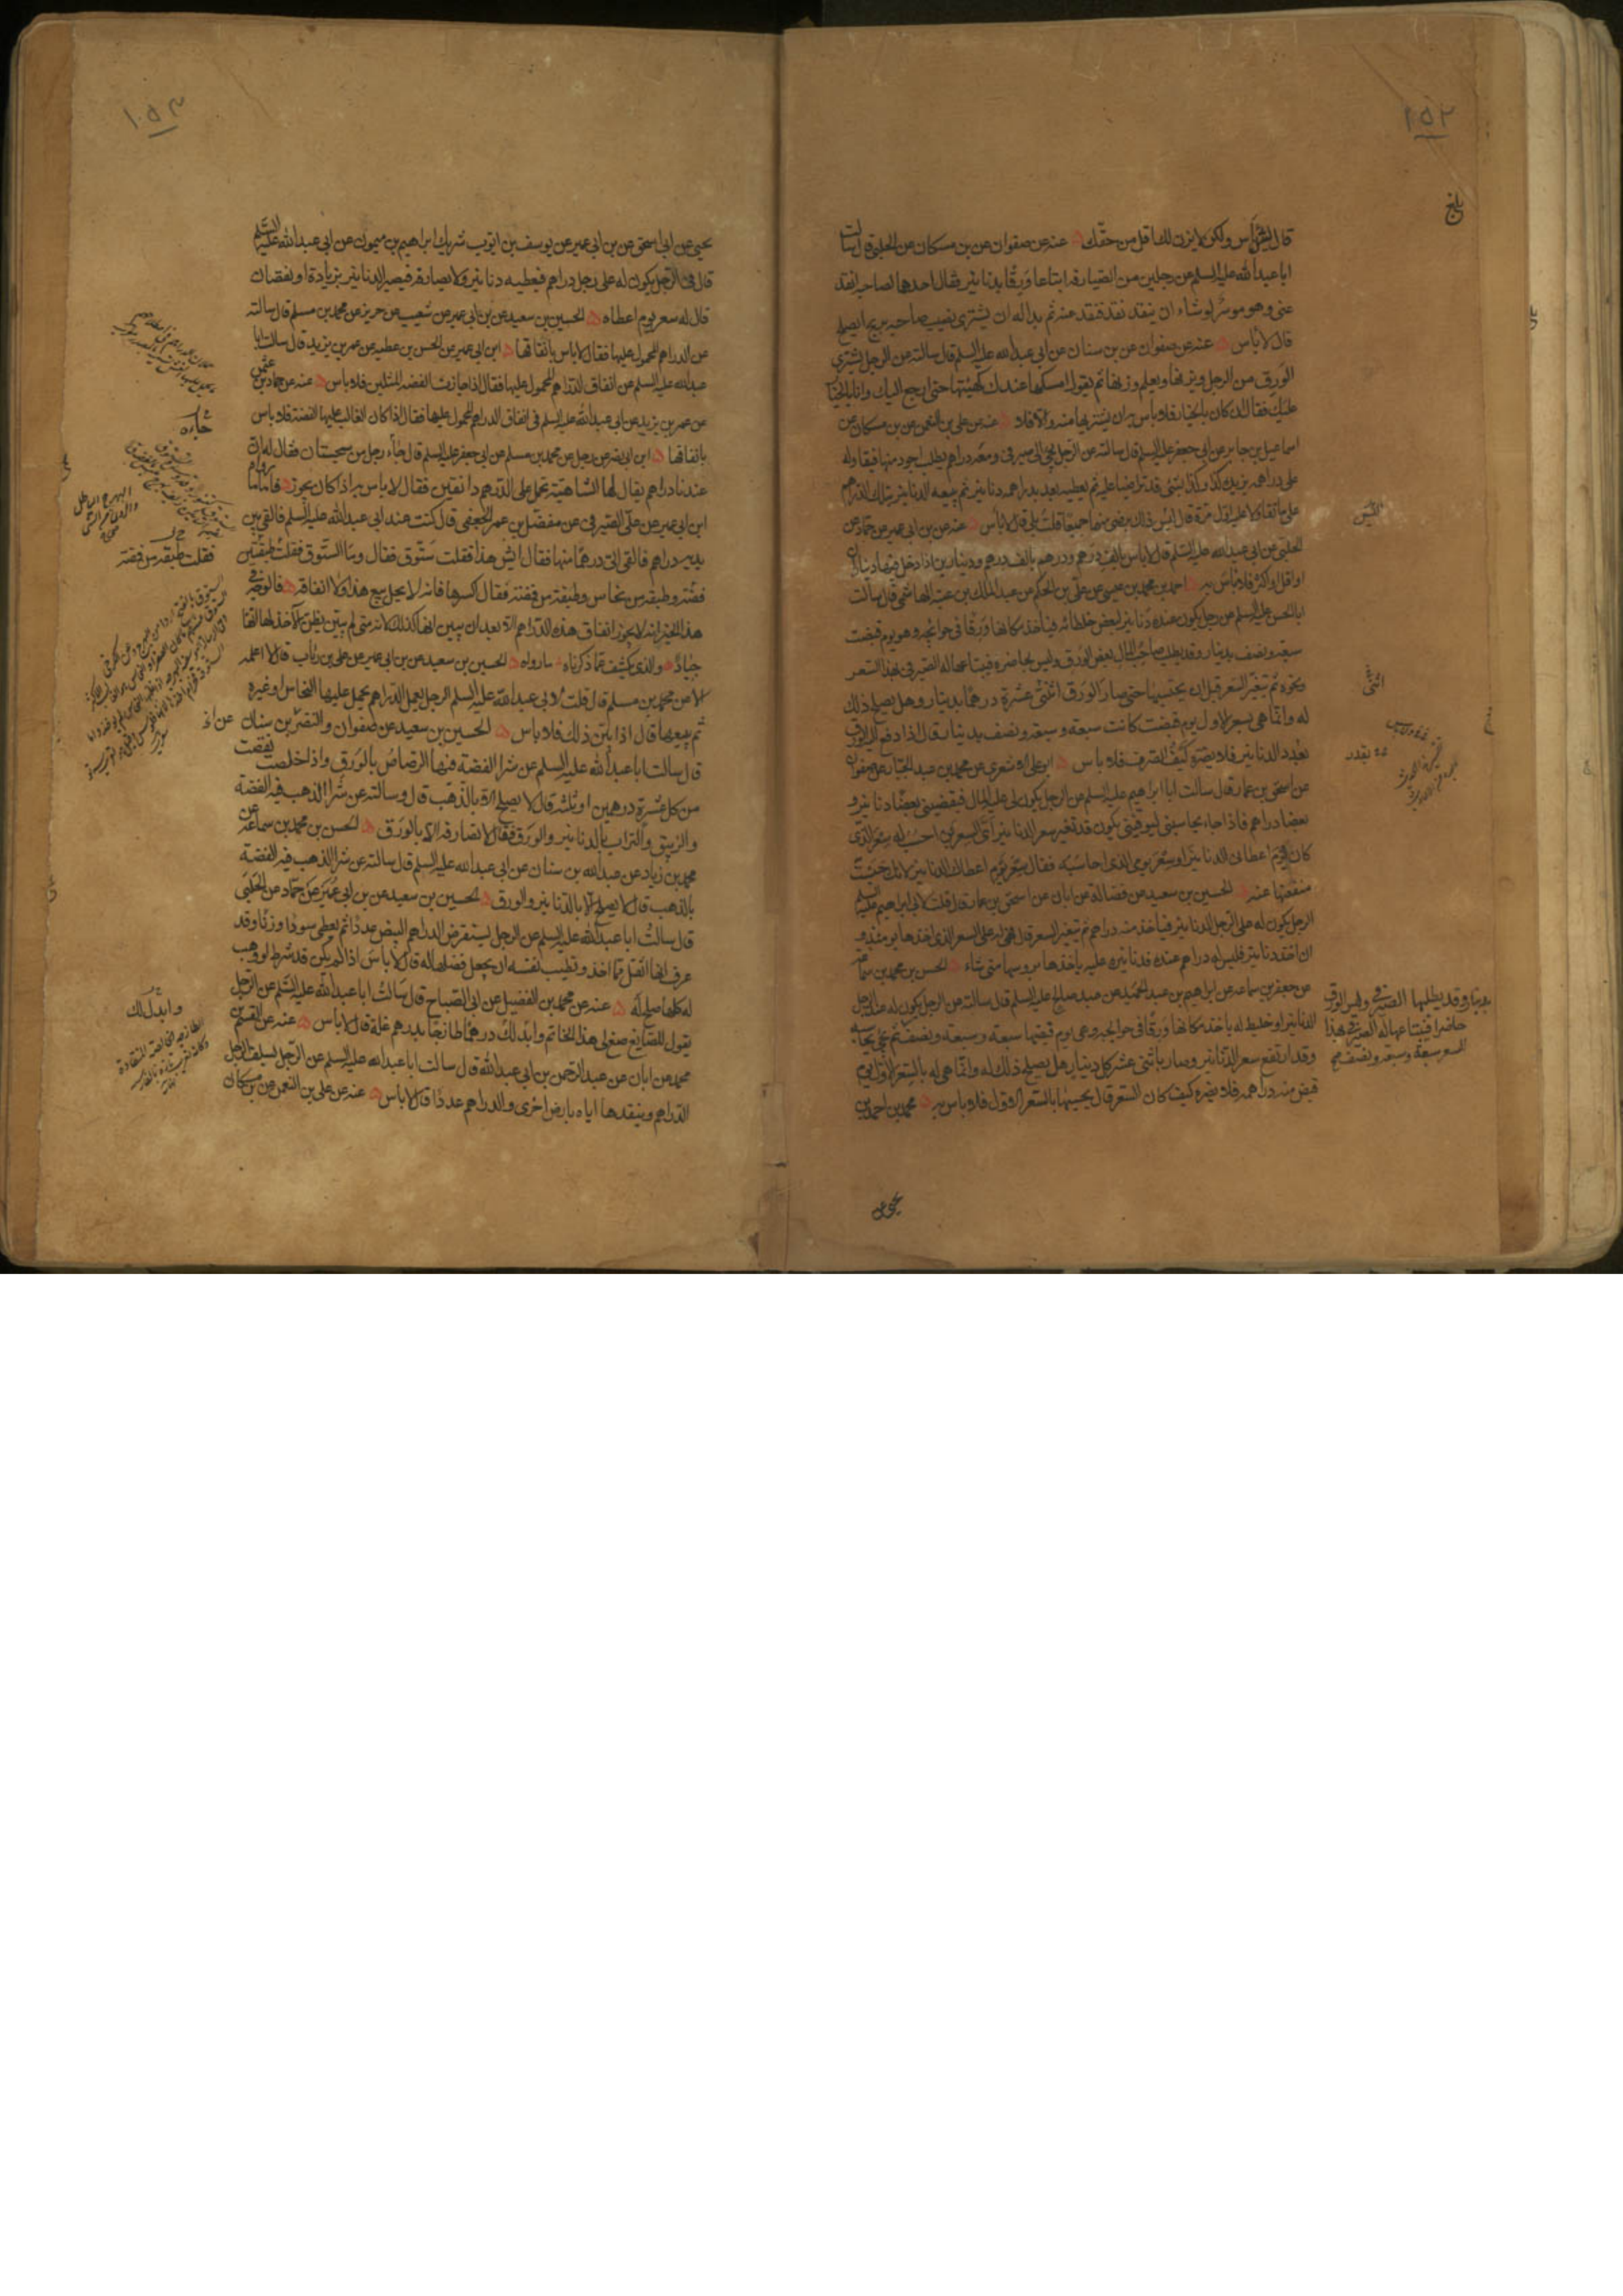 ١٥٢
قال ليس به باس ولكن لا يزن لك اقل من حقك عنه عن صفوان عن بن مسكان عن الحلبي قال سالت
ابا عبد الله عليه السلم عن رجلين من الصيارفة ابتاعا ورقا بدنانير فقال احدهما لصاحبه انقد
عنى وهو موسر لو شاء ان ينقد نقد فنقد عنه ثم بدا له ان يشترى نصيب صاحبه بربح ايصلح
قال لا باس عنه عن صفوان عن بن سنان عن ابى عبد الله عليه السلم قال سالته عن الرجل يشترى
الورق من الرجل ويزنها ويعلم وزنها ثم يقول امسكها عندك كهيئتها حتى ارجع اليك وانا بالخيار
عليك فقال ان كان بالخيار فلا باس به ان يشتريها منه والا فلا عنه عن على بن النعمن عن بن مسكان عن
اسماعيل بن جابر عن ابى جعفر عليه السلم قال سالته عن الرجل يجئ الى صيرفى ومعه دراهم يطلب اجود منها فيقاوله
على دراهمه يزيده كذا وكذا بشئ قد تراضيا عليه ثم يعطيه بعد بدراهمه دنانير ثم يبيعه الدنانير بتلك الدراهم
على ما تقاولا عليه اول مرة قال اليس ذلك برضى منهما جميعا قلت بلى قال لا باس عنه عن بن ابى عمير عن حماد عن
الحلبى عن ابى عبد الله عليه السلم قال لا باس بالف درهم ودرهم بالف درهم ودينارين اذا دخل فيها ديناران
او اقل او اكثر فلا باس به احمد بن محمد بن عيسى عن على بن الحكم عن عبد الملك بن عتبة الهاشمى قال سالت
ابا الحسن عليه السلم عن رجل يكون عنده دنانير لبعض خلطائه فياخذ مكانها ورقا فى حوائجه وهو يوم قبضت
سبعة ونصف بدينار وقد يطلب صاحب المال بعض الورق وليس بحاضرة فيبتاعها له الصيرفى بهذا السعر
ونحوه ثم يتغير السعر قبل ان يحتسبها حتى صار الورق اثنتى عشرة درهما بدينار وهل يصلح ذلك
له وانما هى بسعر الاول يوم قبضت كانت سبعة وسبعة ونصف بدينار قال اذا دفع اليه الورق
بقدر الدنانير فلا يضره كيف الصرف فلا باس ابو على الاشعرى عن محمد بن عبد الجبار عن صفوان
عن اسحق بن عمار قال سالت ابا ابراهيم عليه السلم عن الرجل يكون لى عليه المال فيقضينى بعضا دنانير و
بعضا دراهم فاذا جاء يحاسبنى ليوفينى يكون قد تغير سعر الدنانير اى السعرين احسب له سعر الذى
كان يوم اعطانى الدنانير او سعر يومى الذى احاسبه فقال سعر يوم اعطاك الدنانير لانك حبست
منفعتها عنه الحسين بن سعيد عن فضالة عن ابان عن اسحق بن عمار قال قلت لابى ابراهيم عليه السلم
الرجل يكون له على الرجل الدنانير فياخذ منه دراهم ثم يتغير السعر قال فهى له على السعر الذى اخذها يومئذ و
ان اخذ دنانير فليس له دراهم عنده فدنانيره عليه ياخذها بروسها متى شاء الحسن بن محمد بن سماعة
عن جعفر بن سماعة عن ابراهيم بن عبد الحميد عن عبد صالح عليه السلم قال سالته عن الرجل يكون له عند الرجل
الدنانير او خليط له ياخذ مكانها ورقا فى حوائجه وهى يوم قبضها سبعة وسبعة ونصف ثم يجئ يحاسبه
وقد ارتفع سعر الدنانير وصار باثنى عشر كل دينار هل يصلح ذلك له وانما هى له بالسعر الاول يوم
قبض منه دراهمه فلا يضره كيف كان السعر قال يحسبها بالسعر الاول فلا باس به محمد بن احمد بن
اليس
اثنى
بقدر
بدينار وقد يطلبها الصيرفى وليس الورق
حاضرا فيبتاعها له الصيرفى بهذا
السعر سبعة وسبعة ونصف ثم يجئ
يحيى عن
١٥٣
يحيى عن ابى اسحق عن بن ابى عمير عن يوسف بن ايوب شريك ابراهيم بن ميمون عن ابى عبد الله عليه السلم
قال فى الرجل يكون له على رجل دراهم فيعطيه دنانير ولا يصارفه فيصير الدنانير بزيادة او نقصان
قال له سعر يوم اعطاه الحسين بن سعيد عن بن ابى عمير عن شعيب عن حريز عن محمد بن مسلم قال سالته
عن الدراهم المحمول عليها فقال لا باس بانفاقها ابن ابى عمير عن الحسن بن عطيه عن عمر بن يزيد قال سالت ابا
عبد الله عليه السلم عن انفاق الدراهم المحمول عليها فقال اذا جازت الفضة المثلين فلا باس عنه عن حماد بن عثمن
عن عمر بن يزيد عن ابى عبد الله عليه السلم فى انفاق الدراهم المحمول عليها فقال اذا كان الغالب عليها الفضة فلا باس
بانفاقها ابن ابى نصر عن رجل عن محمد بن مسلم عن ابى جعفر عليه السلم قال جاء رجل من سجستان فقال له ان
عندنا دراهم يقال لها الشاهية تحمل على الدرهم دانقين فقال لا باس به اذا كان يجوز فاما ما رواه
ابن ابى عمير عن على الصيرفى عن مفضل بن عمر الجعفى قال كنت عند ابى عبد الله عليه السلم فالقى بين
يديه دراهم فالقى الى درهما منها فقال ايش هذا فقلت ستوق فقال وما الستوق فقلت طبقتين
فضة وطبقة من نحاس وطبقة من فضة فقال اكسرها فانه لا يحل بيع هذا ولا انفاقه فالوجه فى
هذا الخبر انه لا يجوز انفاق هذه الدراهم الا بعد ان يبين انها كذلك لانه متى لم يبين يظن الآخذ لها انها
جياد والذى يكشف عما ذكرناه ما رواه الحسين بن سعيد عن بن ابى عمير عن على بن رئاب قال لا اعلمه
الا عن محمد بن مسلم قال قلت لابى عبد الله عليه السلم الرجل يعمل الدراهم يحمل عليها النحاس او غيره
ثم يبيعها قال اذا بين ذلك فلا باس الحسين بن سعيد عن صفوان والنضر بن سنان
قال سالت ابا عبد الله عليه السلم عن شرا الفضة فيها الرصاص بالورق واذا خلصت نقصت
من كل عشرة درهمين او ثلثة قال لا يصلح الا بالذهب قال وسالته عن شرا الذهب فيه الفضة
والزيبق والتراب بالدنانير والورق فقال لا تصارفه الا بالورق الحسن بن محمد بن سماعة عن
محمد بن زياد عن عبد الله بن سنان عن ابى عبد الله عليه السلم قال سالته عن شرا الذهب فيه الفضة
بالذهب قال لا يصلح الا بالدنانير والورق الحسين بن سعيد عن بن ابى عمير عن حماد عن الحلبى
قال سالت ابا عبد الله عليه السلم عن الرجل يستقرض الدراهم البيض عددا ثم يعطى سودا وزنا وقد
عرف انها اثقل مما اخذ وتطيب نفسه ان يجعل فضلها له قال لا باس اذا لم يكن قد شرط لو وهب
له كلها صلح له عنه عن محمد بن الفضيل عن ابى الصباح قال سالت ابا عبد الله عليه السلم عن الرجل
يقول للصايغ صغ لى هذا الخاتم وابدل لك درهما طازجا بدرهم غلة قال لا باس عنه عن القسم بن
محمد عن ابان عن عبد الرحمن بن ابى عبد الله قال سالت ابا عبد الله عليه السلم عن الرجل يسلف الرجل
الدراهم وينقدها اياه بارض اخرى والدراهم عددا قال لا باس عنه عن على بن النعمن عن بن مسكان
جاءه
فقلت طبقة من فضة
وابدل لك